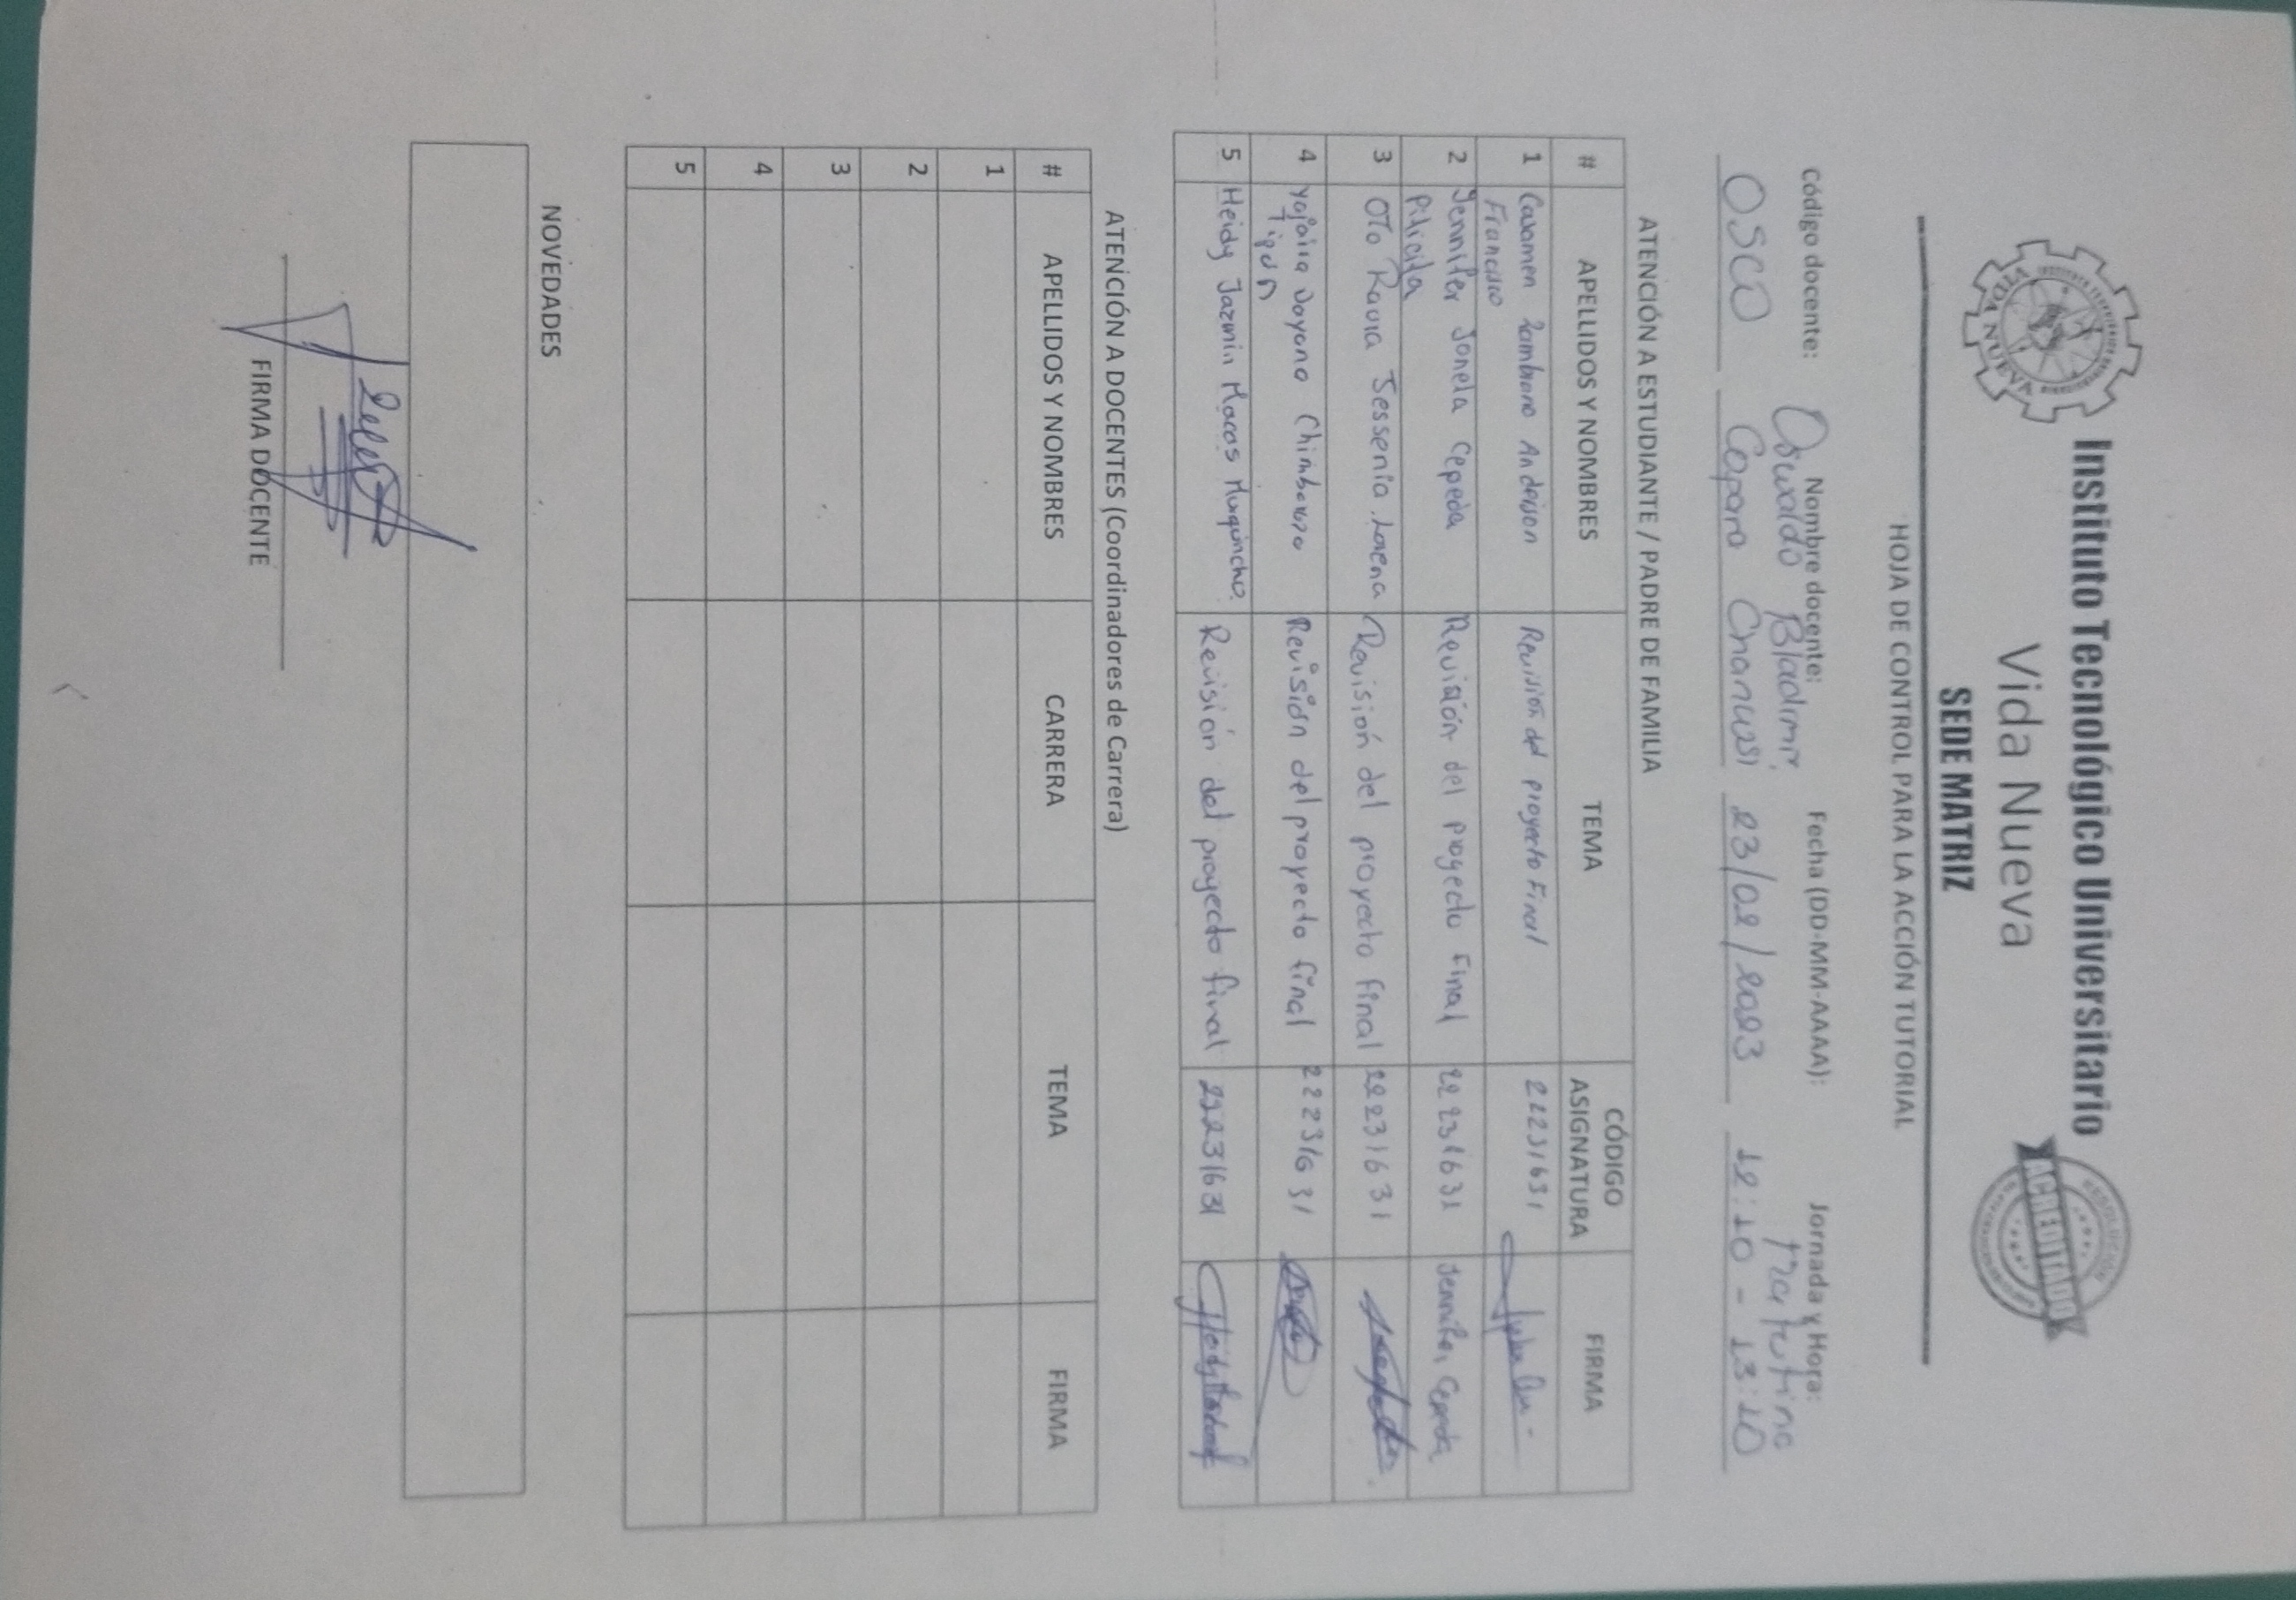 Instituto Tecnológico Universitario
Vida Nueva
SEDE MATRIZ
ACREDITADO
HOJA DE CONTROL PARA LA ACCIÓN TUTORIAL
Código docente: Nombre docente: Fecha (DD-MM-AAAA): Jornada y Hora:
Oswaldo Bladimir Matutina
OSCO Capara Chanusi 23/02/2023 12:10 - 13:10
ATENCIÓN A ESTUDIANTE / PADRE DE FAMILIA
# APELLIDOS Y NOMBRES TEMA CÓDIGO ASIGNATURA FIRMA
1 Casamen Zambrano Anderson Francisco Revisión del proyecto Final 22231631
2 Jennifer Jomela Cepeda Pilicita Revisión del proyecto Final 22231631 Jennifer Cepeda
3 Oto Jessenia Lorena Revisión del proyecto final 22231631
4 Yajaira Dayana Chimborazo Tigon Revisión del proyecto final 22231631
5 Heidy Jazmin Macas Muquincho. Revisión del proyecto final 22231631
ATENCIÓN A DOCENTES (Coordinadores de Carrera)
# APELLIDOS Y NOMBRES CARRERA TEMA FIRMA
1
2
3
4
5
NOVEDADES
FIRMA DOCENTE